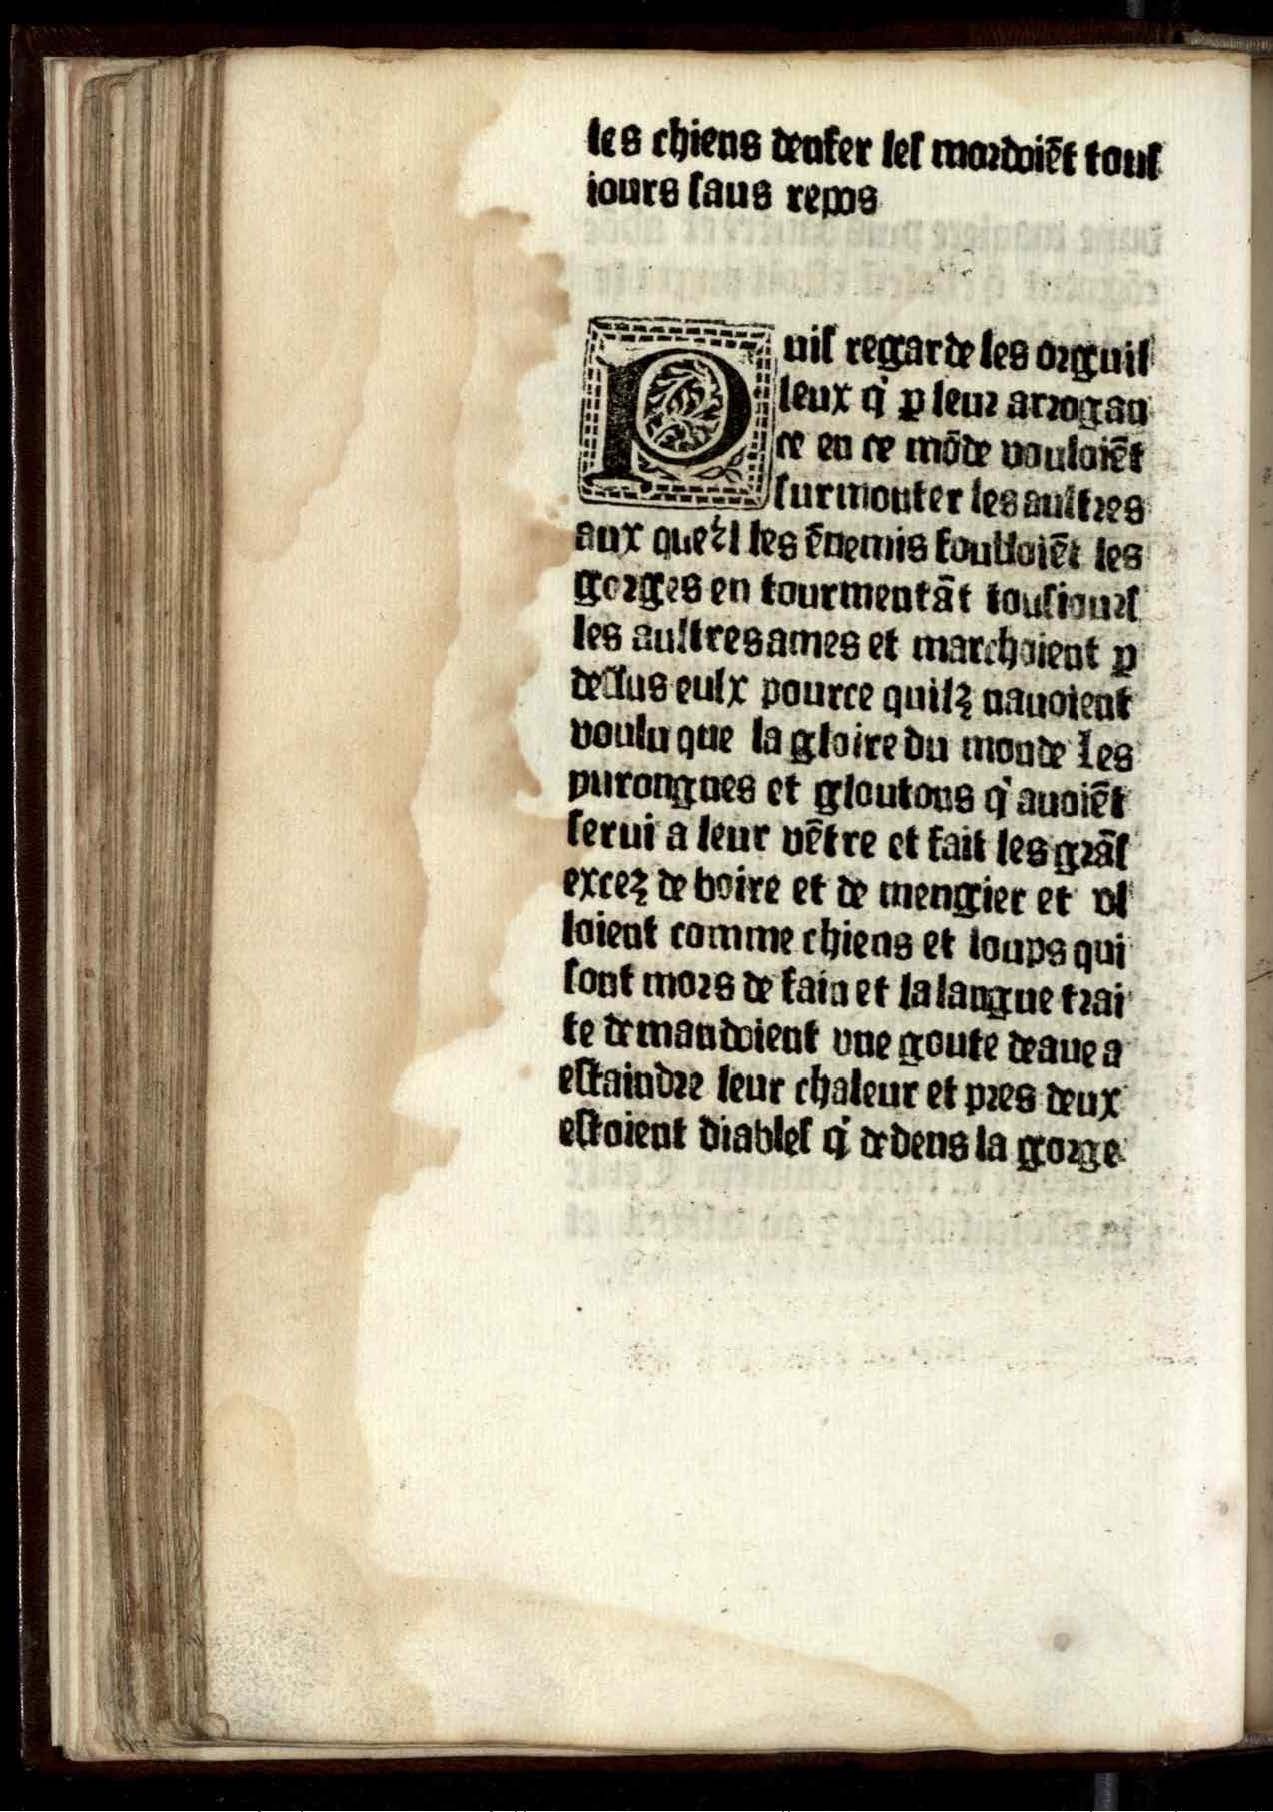 les chiens denfer leſ mordoiẽt touſ
iours ſans repos
Puiſ regarde les orguil
leux q̇ ꝑ leur arrogan
ce en ce mõde vouloiẽt
ſurmonter les aultres
aux les ẽnemis foulloiẽt les
gorges en tourmentãt touſiourſ
les aultres ames et marchoient ꝑ
deſſus eulx pource quilz nauoient
voulu que la gloire du monde Les
yurongnes et gloutons q̇ auoiẽt
ſerui a leur vẽtre et fait les grãſ
excez de boire et de mengier et vl
loient comme chiens et loups qui
ſont mors de fain et la langue trai
te demandoient vne goute deaue a
eſtaindre leur chaleur et pres deux
eſtoient diableſ q̇ dedens la gorge